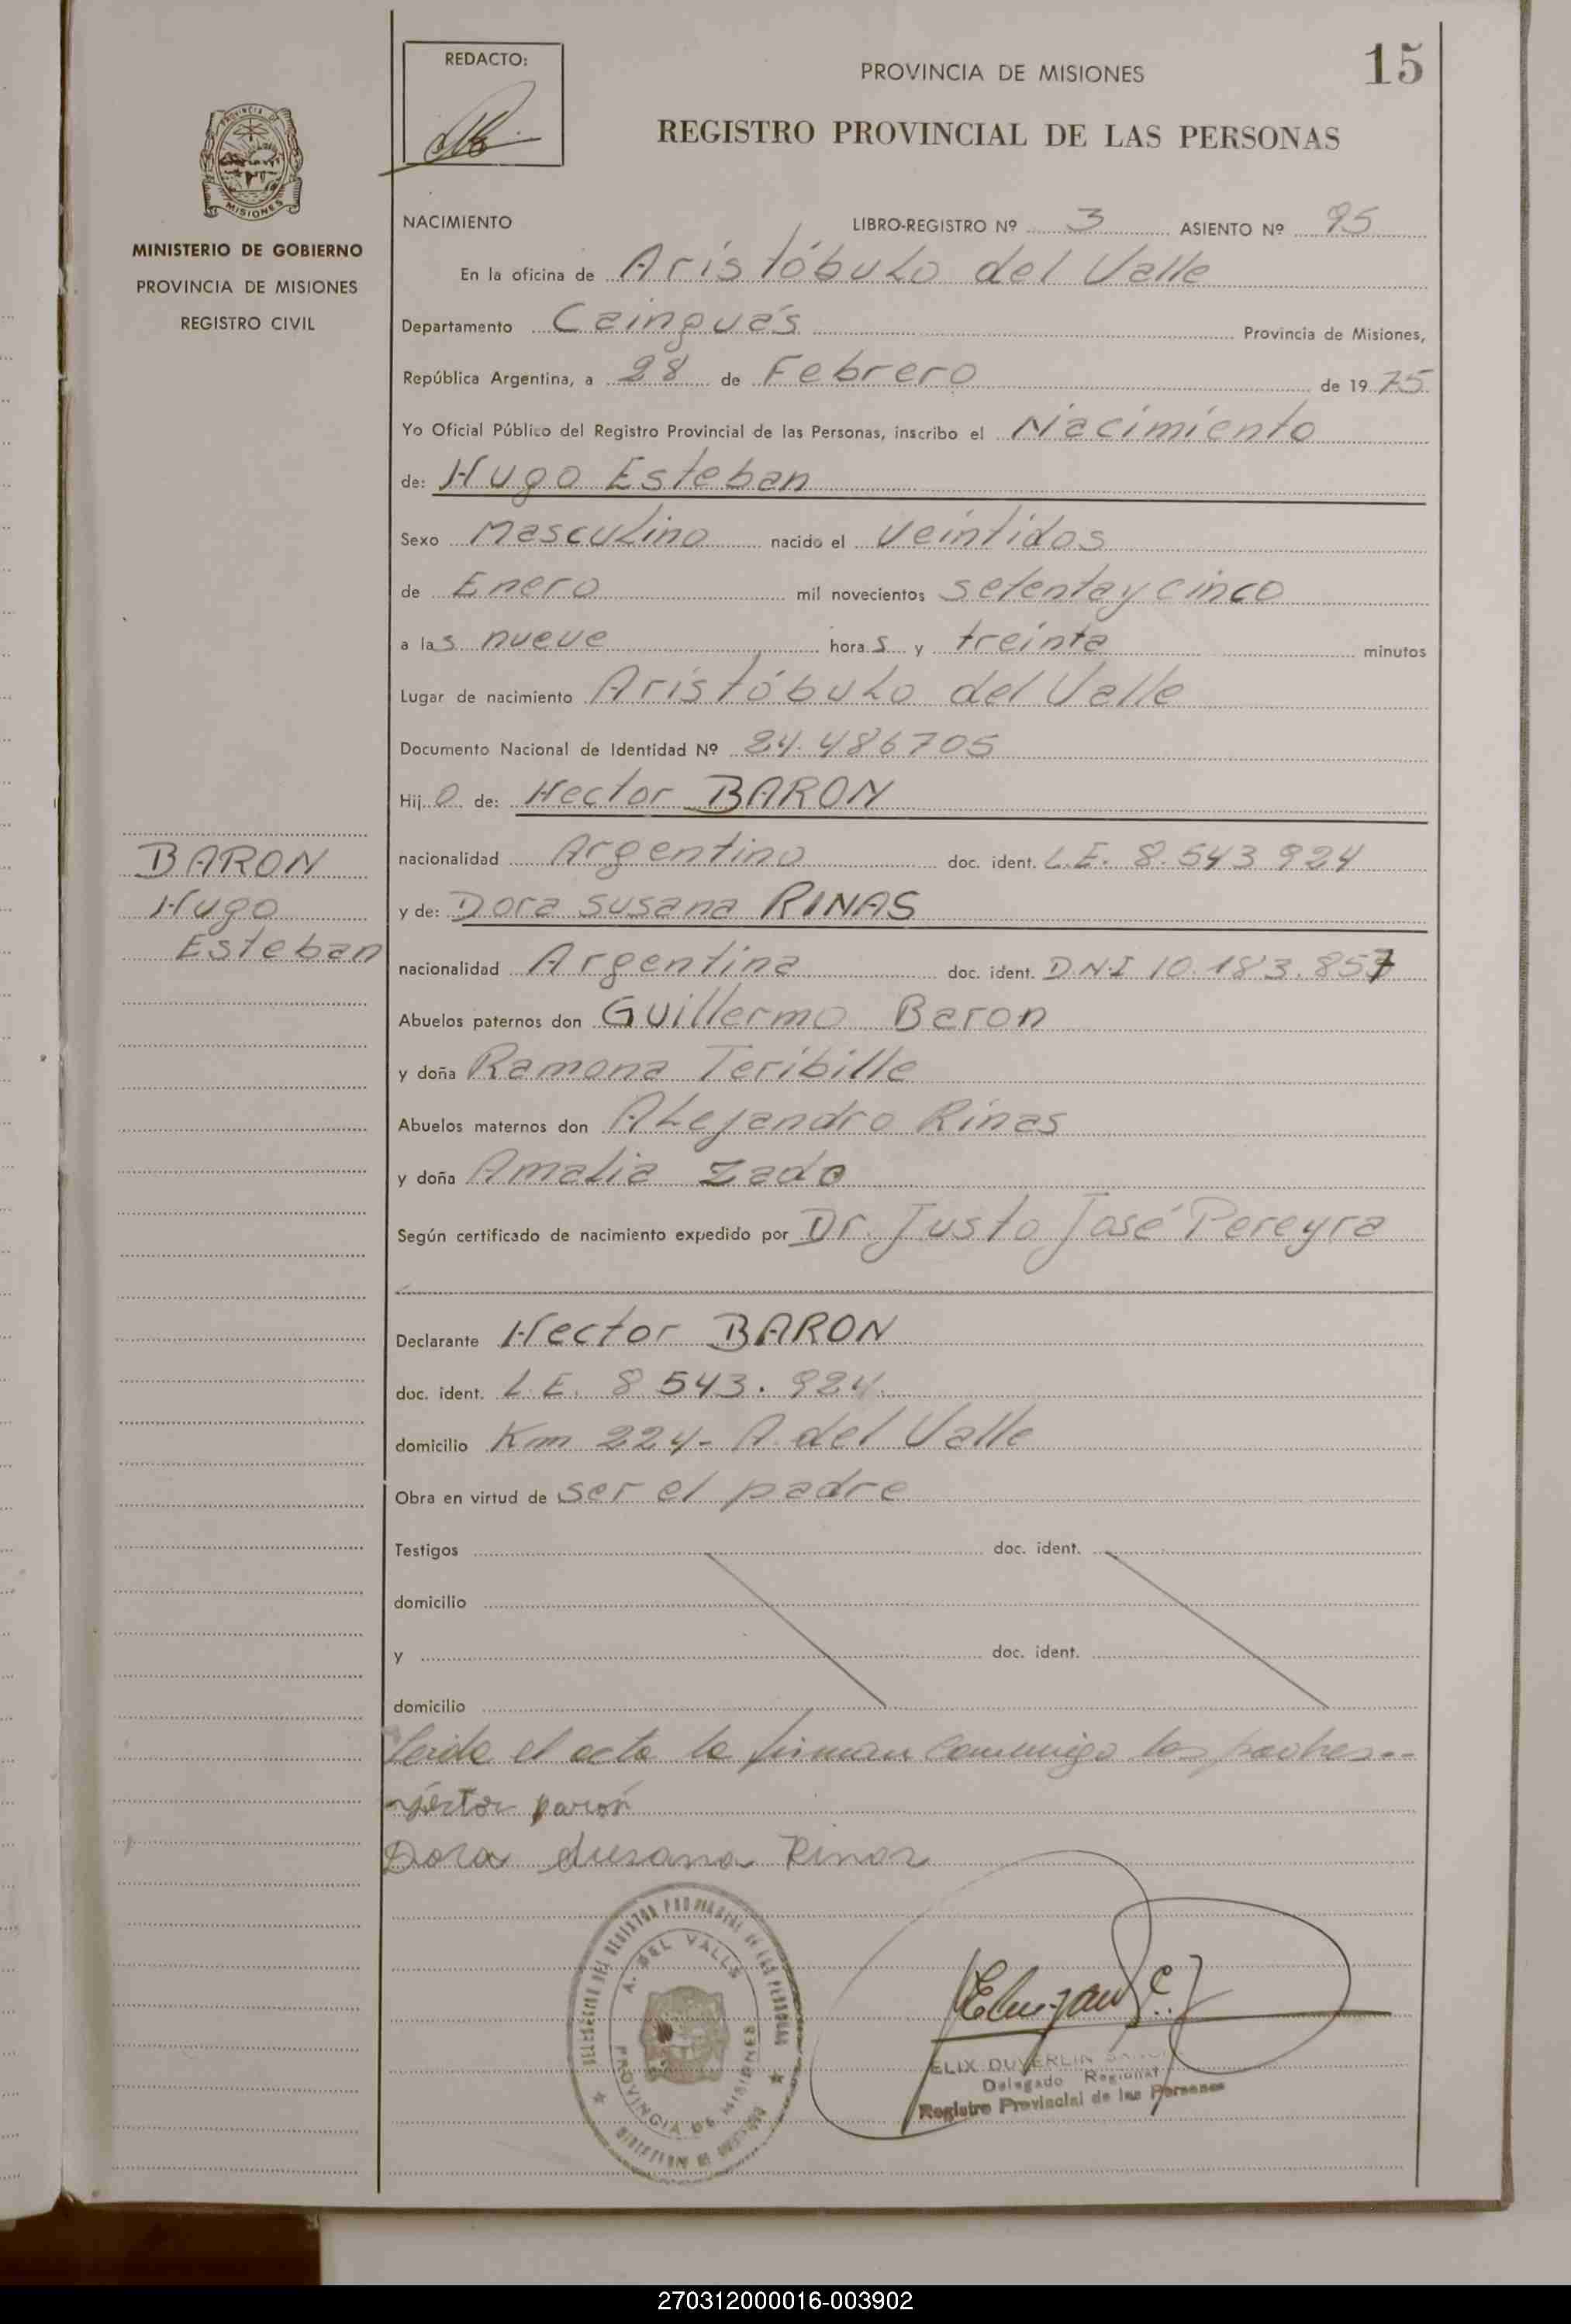 15
REDACTO:
PROVINCIA DE MISIONES
REGISTRO PROVINCIAL DE LAS PERSONAS
MISIONES
MINISTERIO DE GOBIERNO
PROVINCIA DE MISIONES
REGISTRO CIVIL
NACIMIENTO LIBRO-REGISTRO Nº 3 ASIENTO Nº 95
En la oficina de Aristóbulo del Valle
Departamento Cainguás Provincia de Misiones,
República Argentina, a 28 de Febrero de 1975
Yo Oficial Público del Registro Provincial de las Personas, inscribo el Nacimiento
de: Hugo Esteban
Sexo Masculino nacido el veintidos
de Enero mil novecientos setenta y cinco
a las nueve horas y treinta minutos
Lugar de nacimiento Aristóbulo del Valle
Documento Nacional de Identidad Nº 24.486705
Hijo de: Hector BARON
nacionalidad Argentino doc. ident. L.E. 8.543924
y de: Dora Susana RINAS
nacionalidad Argentina doc. ident. DNI 10.183.857
BARON
Hugo
Esteban
Abuelos paternos don Guillermo Baron
y doña Ramona Teribille
Abuelos maternos don Alejandro Rinas
y doña Amalia Zado
Según certificado de nacimiento expedido por Dr. Justo José Pereyra
Declarante Hector BARON
doc. ident. L.E. 8 543.924.
domicilio Km 224- A. del Valle
Obra en virtud de ser el padre
Testigos doc. ident.
domicilio
y doc. ident.
domicilio
Leida el acta la firman conmigo los padres
Héctor barón
Dora Susana Rinas
A. DEL VALLE
PROVINCIA DE MISIONES
ELIX DUVERLIN
Delegado Regional
Registro Provincial de las Personas
270312000016-003902